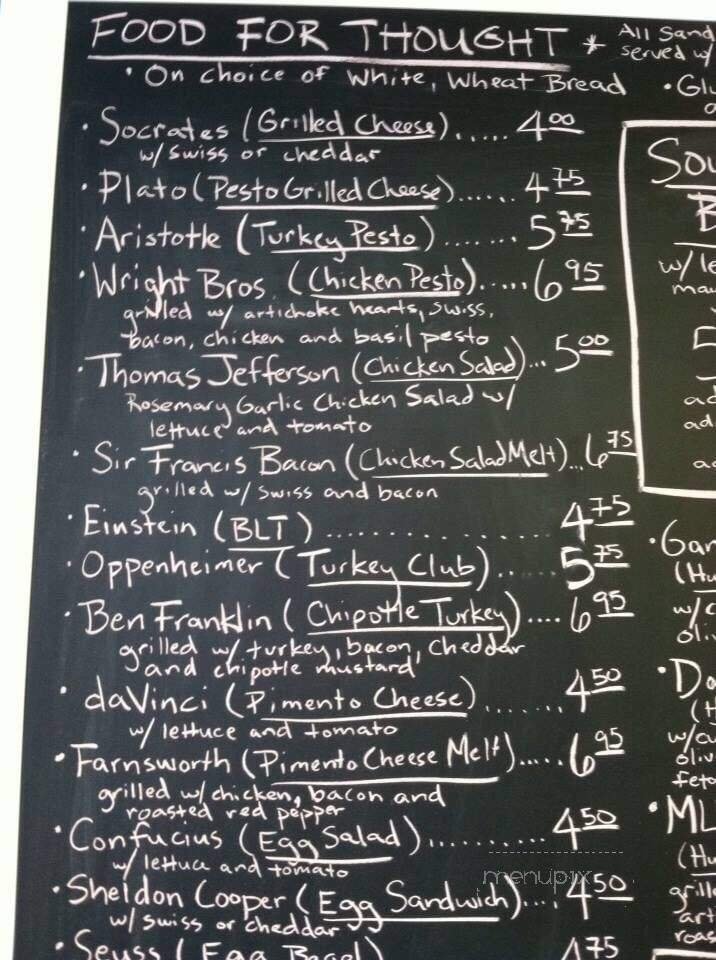 FOOD FOR THOUGHT * All Sand
served w/
• On choice of White, Wheat Bread
• Socrates (Grilled Cheese)..... 4.00
w/ swiss or cheddar
• Plato (Pesto Grilled Cheese)...... 4.75
• Aristotle (Turkey Pesto)....... 5.75
• Wright Bros. (Chicken Pesto)..... 6.95
grilled w/ artichoke hearts, swiss,
bacon, chicken and basil pesto
• Thomas Jefferson (Chicken Salad)... 5.00
Rosemary Garlic Chicken Salad w/
lettuce and tomato
• Sir Francis Bacon (Chicken Salad Melt)... 6.75
grilled w/ swiss and bacon
• Einstein (BLT) ................ 4.75
• Oppenheimer (Turkey Club)...... 5.75
• Ben Franklin (Chipotle Turkey).... 6.95
grilled w/ turkey, bacon, cheddar
and chipotle mustard
• daVinci (Pimento Cheese)....... 4.50
w/ lettuce and tomato
• Farnsworth (Pimento Cheese Melt)..... 6.95
grilled w/ chicken, bacon and
roasted red pepper
• Confucius (Egg Salad).......... 4.50
w/ lettuce and tomato
• Sheldon Cooper (Egg Sandwich).... 4.50
w/ swiss or cheddar
• Seuss (Egg Bagel) 4.75
• Glu
Sou
B
w/ le
ma
5
ad
ad
a
• Gar
(Hu
w/c
oli
• Da
(H
w/cu
oliv
feta
• ML
(Hu
grille
art
roas
menupix